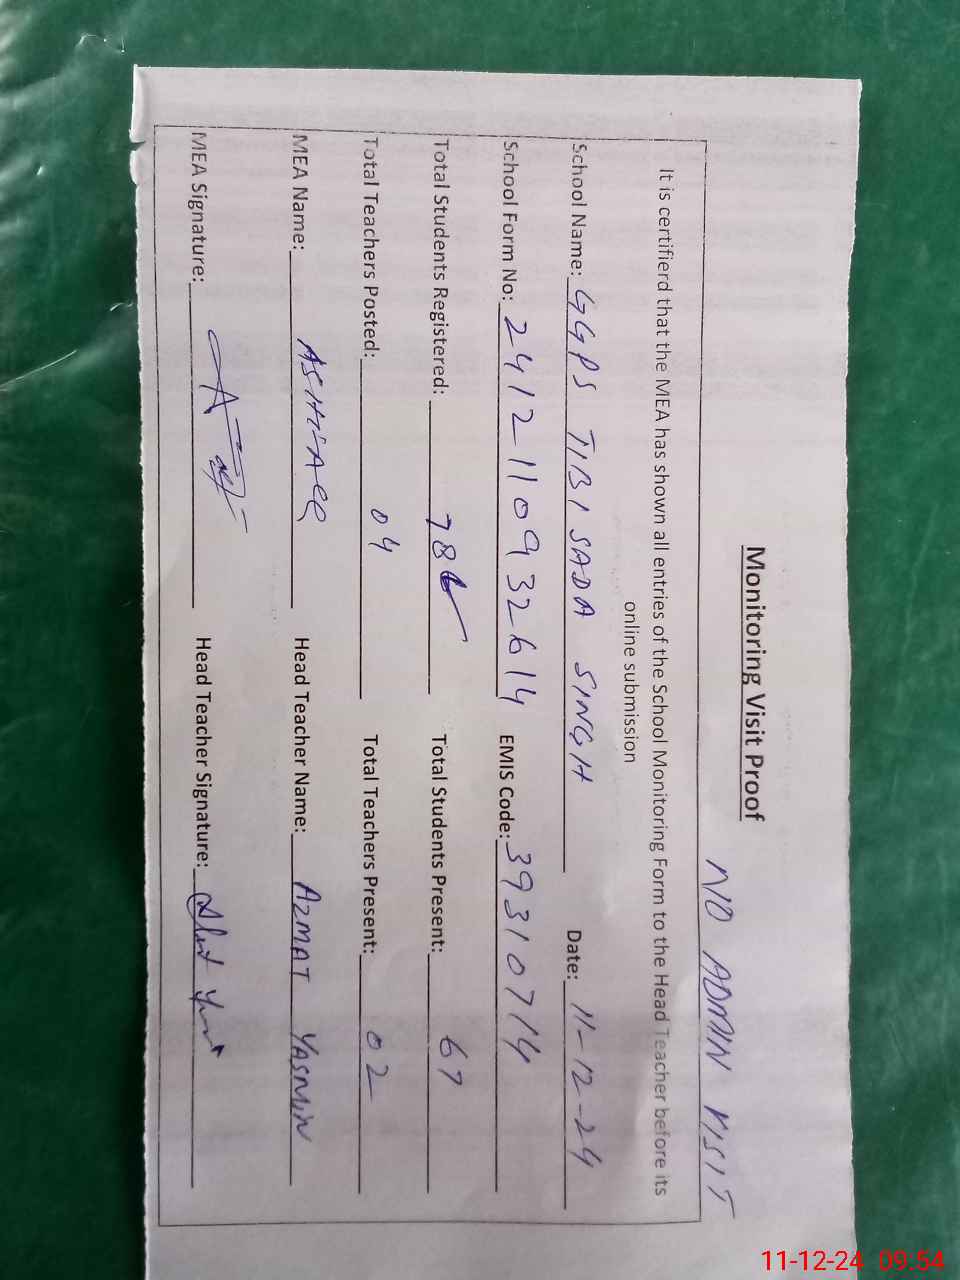 Monitoring Visit Proof
NO ADMIN VISIT
It is certifierd that the MEA has shown all entries of the School Monitoring Form to the Head Teacher before its
online submission
School Name: GGPS TIBI SADA SINGH Date: 11-12-24
School Form No: 2412110932614 EMIS Code: 39310714
Total Students Registered: 78 Total Students Present: 67
Total Teachers Posted: 04 Total Teachers Present: 02
MEA Name: Head Teacher Name: AZMAT YASMIN
MEA Signature: Head Teacher Signature:
11-12-24 09:54